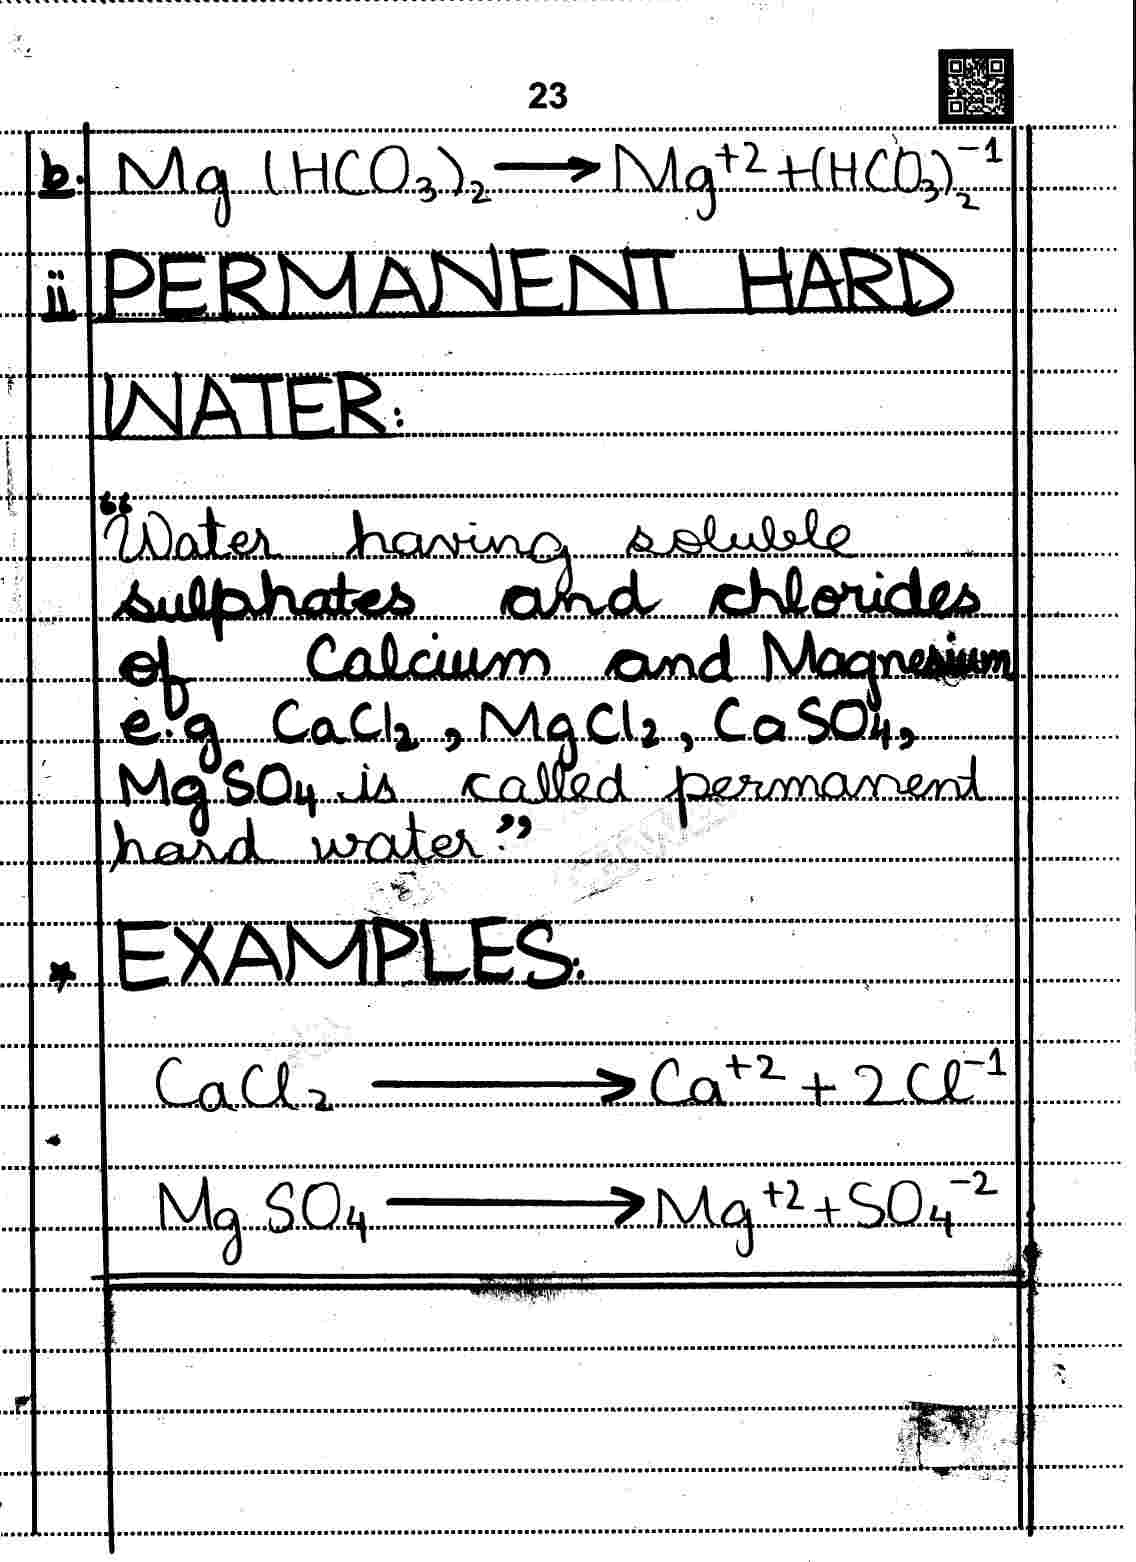 23
b. Mg (HCO₃)₂ → Mg⁺² + (HCO₃)₂⁻¹
ii PERMANENT HARD
WATER:
“Water having soluble
sulphates and chlorides
of Calcium and Magnesium
e.g CaCl₂, MgCl₂, CaSO₄,
MgSO₄ is called permanent
hard water.”
* EXAMPLES:
CaCl₂ → Ca⁺² + 2Cl⁻¹
MgSO₄ → Mg⁺² + SO₄⁻²